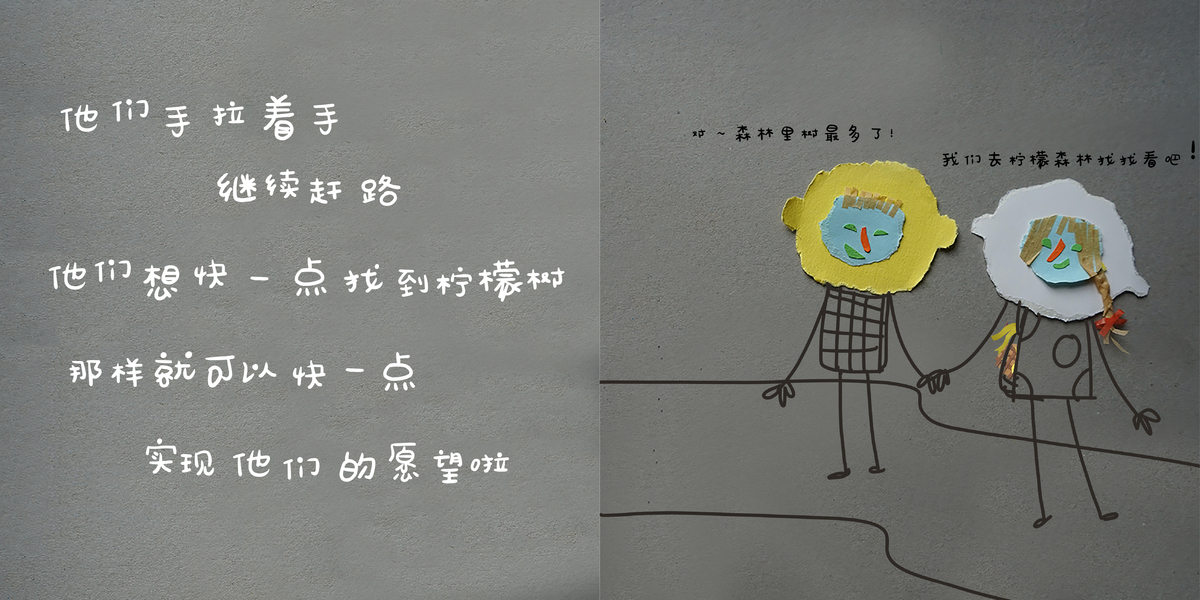 他们手拉着手
继续赶路
他们想快一点找到柠檬树
那样就可以快一点
实现他们的愿望啦
对~森林里树最多了!
我们去柠檬森林找找看吧!